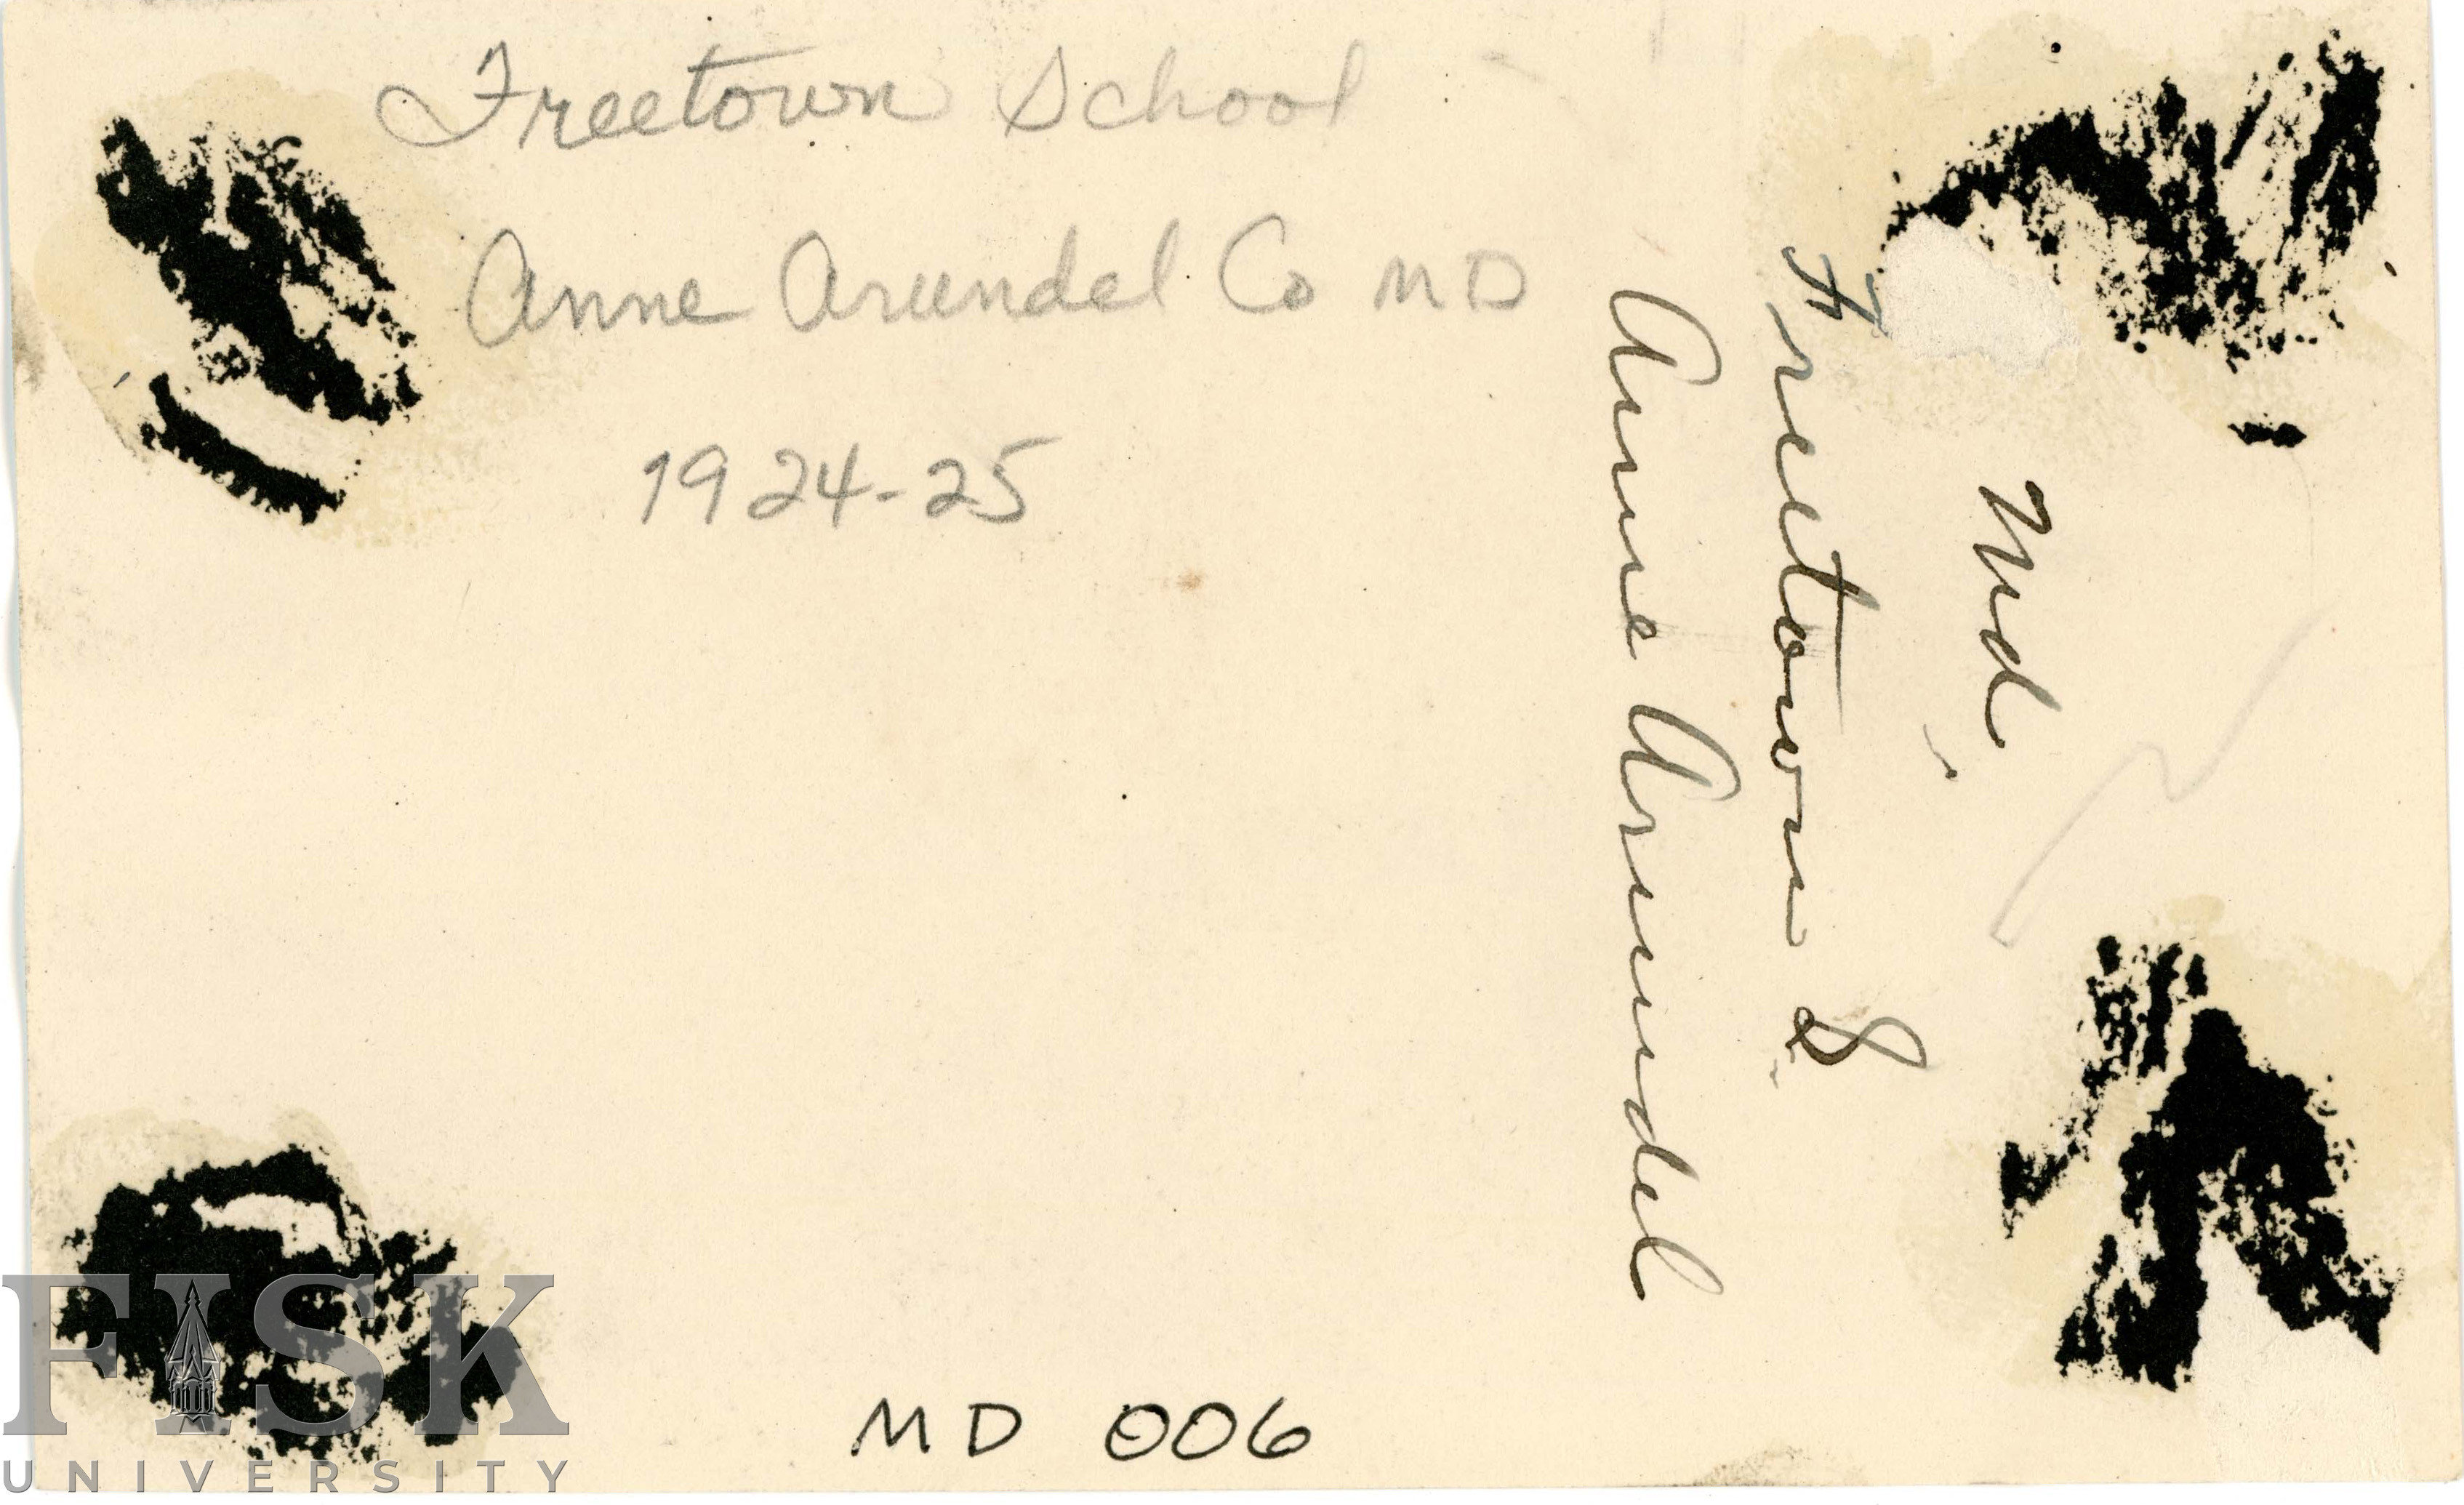 Freetown School
Anne Arundel Co MD
1924-25
Md.
Freetown S
Anne Arundel
MD 006
FISK
UNIVERSITY